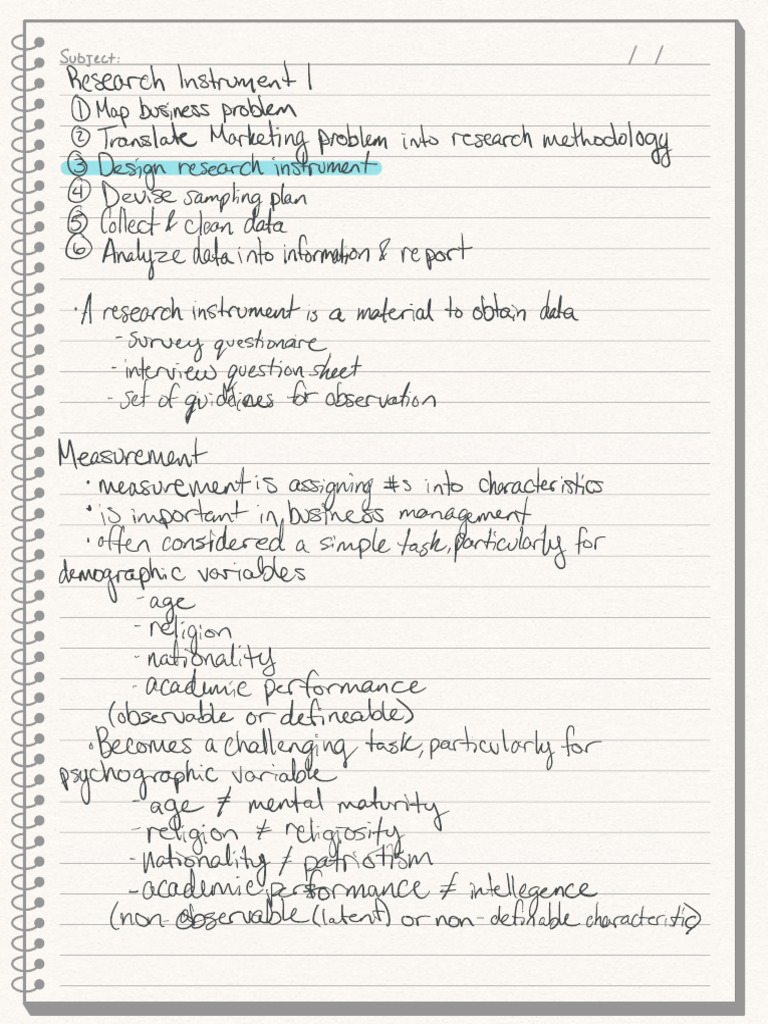 Subject: / /
Research Instrument 1
① Map business problem
② Translate Marketing problem into research methodology
③ Design research instrument
④ Devise sampling plan
⑤ Collect & clean data
⑥ Analyze data into information & report
· A research instrument is a material to obtain data
- survey questionaire
- interview question sheet
- set of guidelines for observation
Measurement
· measurement is assigning #s into characteristics
· is important in business management
· often considered a simple task, particularly for
demographic variables
- age
- religion
- nationality
- academic performance
(observable or defineable)
· Becomes a challenging task, particularly for
psychographic variable
- age ≠ mental maturity
- religion ≠ religiosity
- nationality ≠ patriotism
- academic performance ≠ intellegence
(non-observable (latent) or non-definable characteristic)